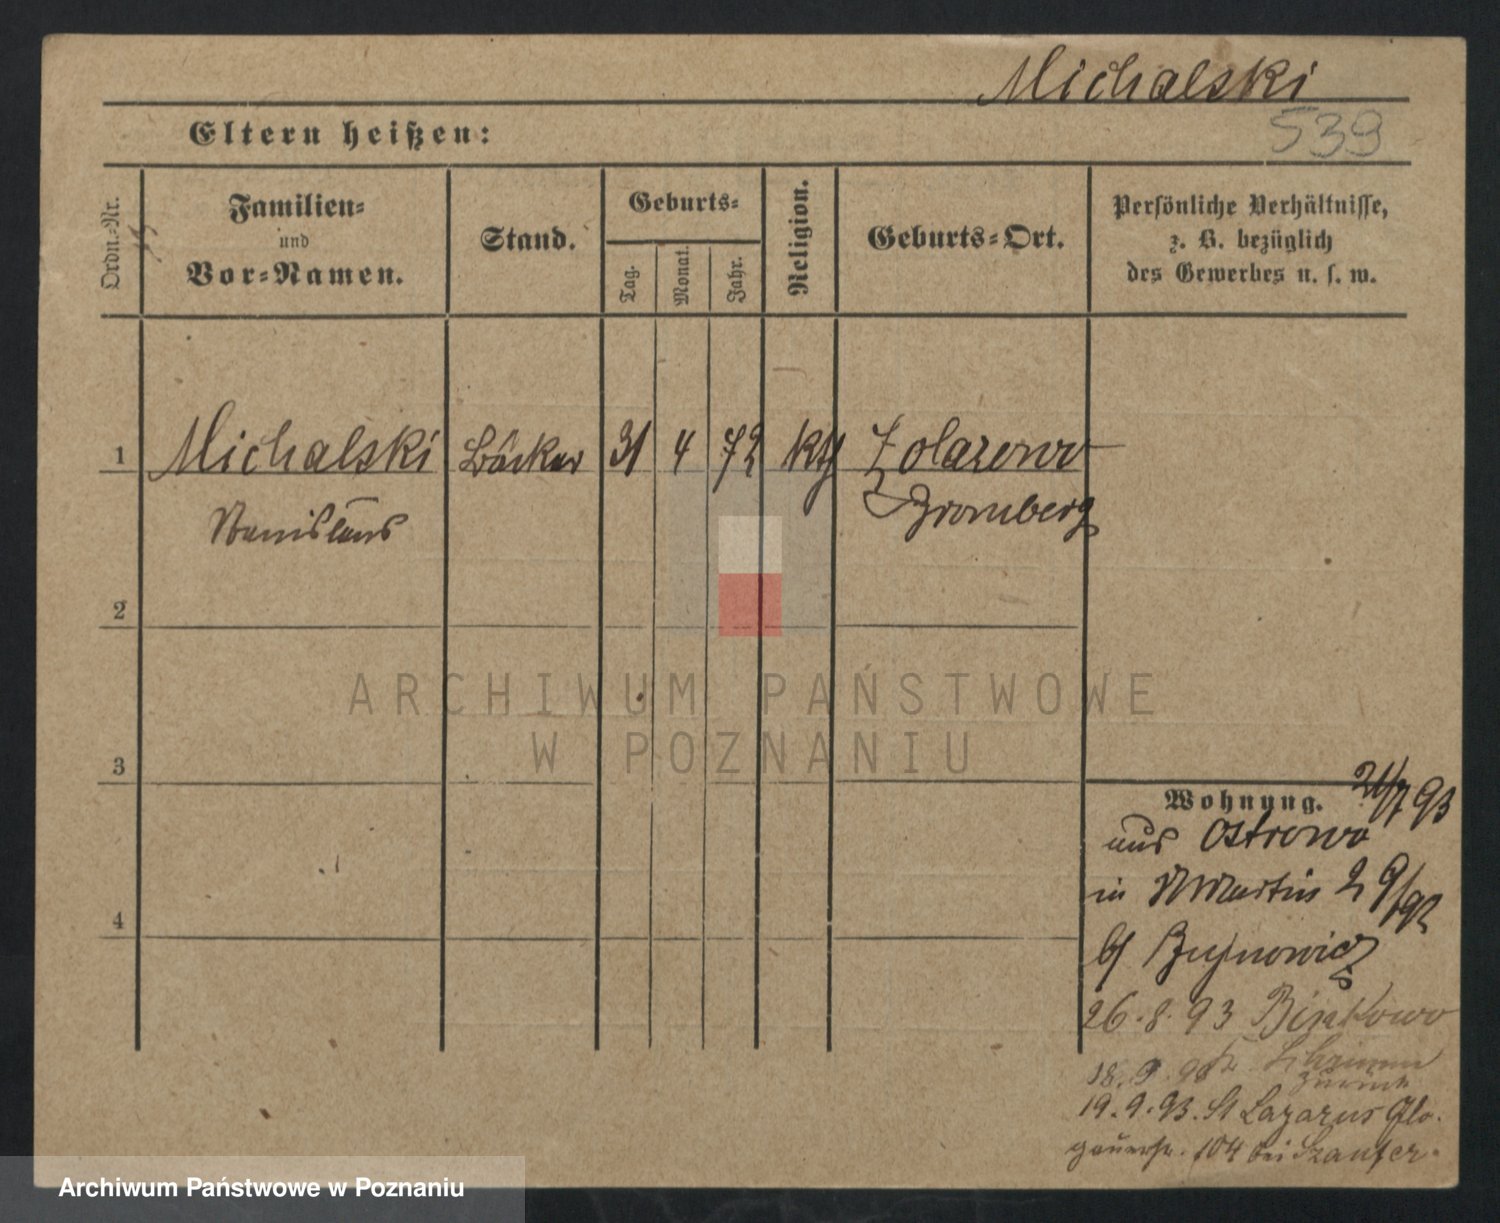 Michalski
539
Eltern heißen:
Ordn.-Nr.
Familien-
und
Vor-Namen.
Stand.
Geburts-
Tag.
Monat.
Jahr.
Religion.
Geburts-Ort.
Persönliche Verhältnisse,
z. B. bezüglich
des Gewerbes u. s. w.
1
Michalski
Bäcker
31
4
72
kth
Bromberg
Stanislaus
2
3
4
ARCHIWUM PAŃSTWOWE
W POZNANIU
Wohnung.
21/7 93
aus Ostrowo
in St Martin 2 9/92
b/
26.8.93
zurück
19.9.93. St Lazarus Glo-
gauerstr. 104 bei
Archiwum Państwowe w Poznaniu